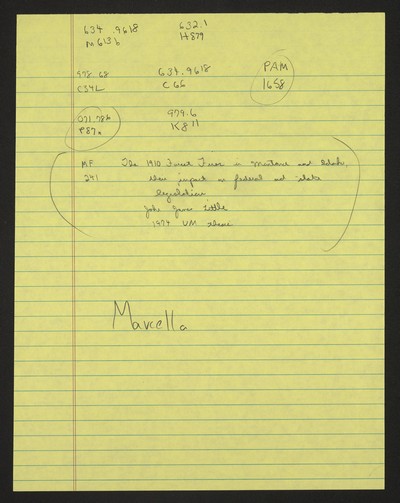 634.9618 632.1
M613b H879
978.68 634.9618 PAM
C342 C66 1658
071.786 979.6
P87a K811
MF The 1910 Forest Fires in Montana and Idaho,
241 their impact on federal and state
legislation
John James Little
1974 UM thesis
Marcella